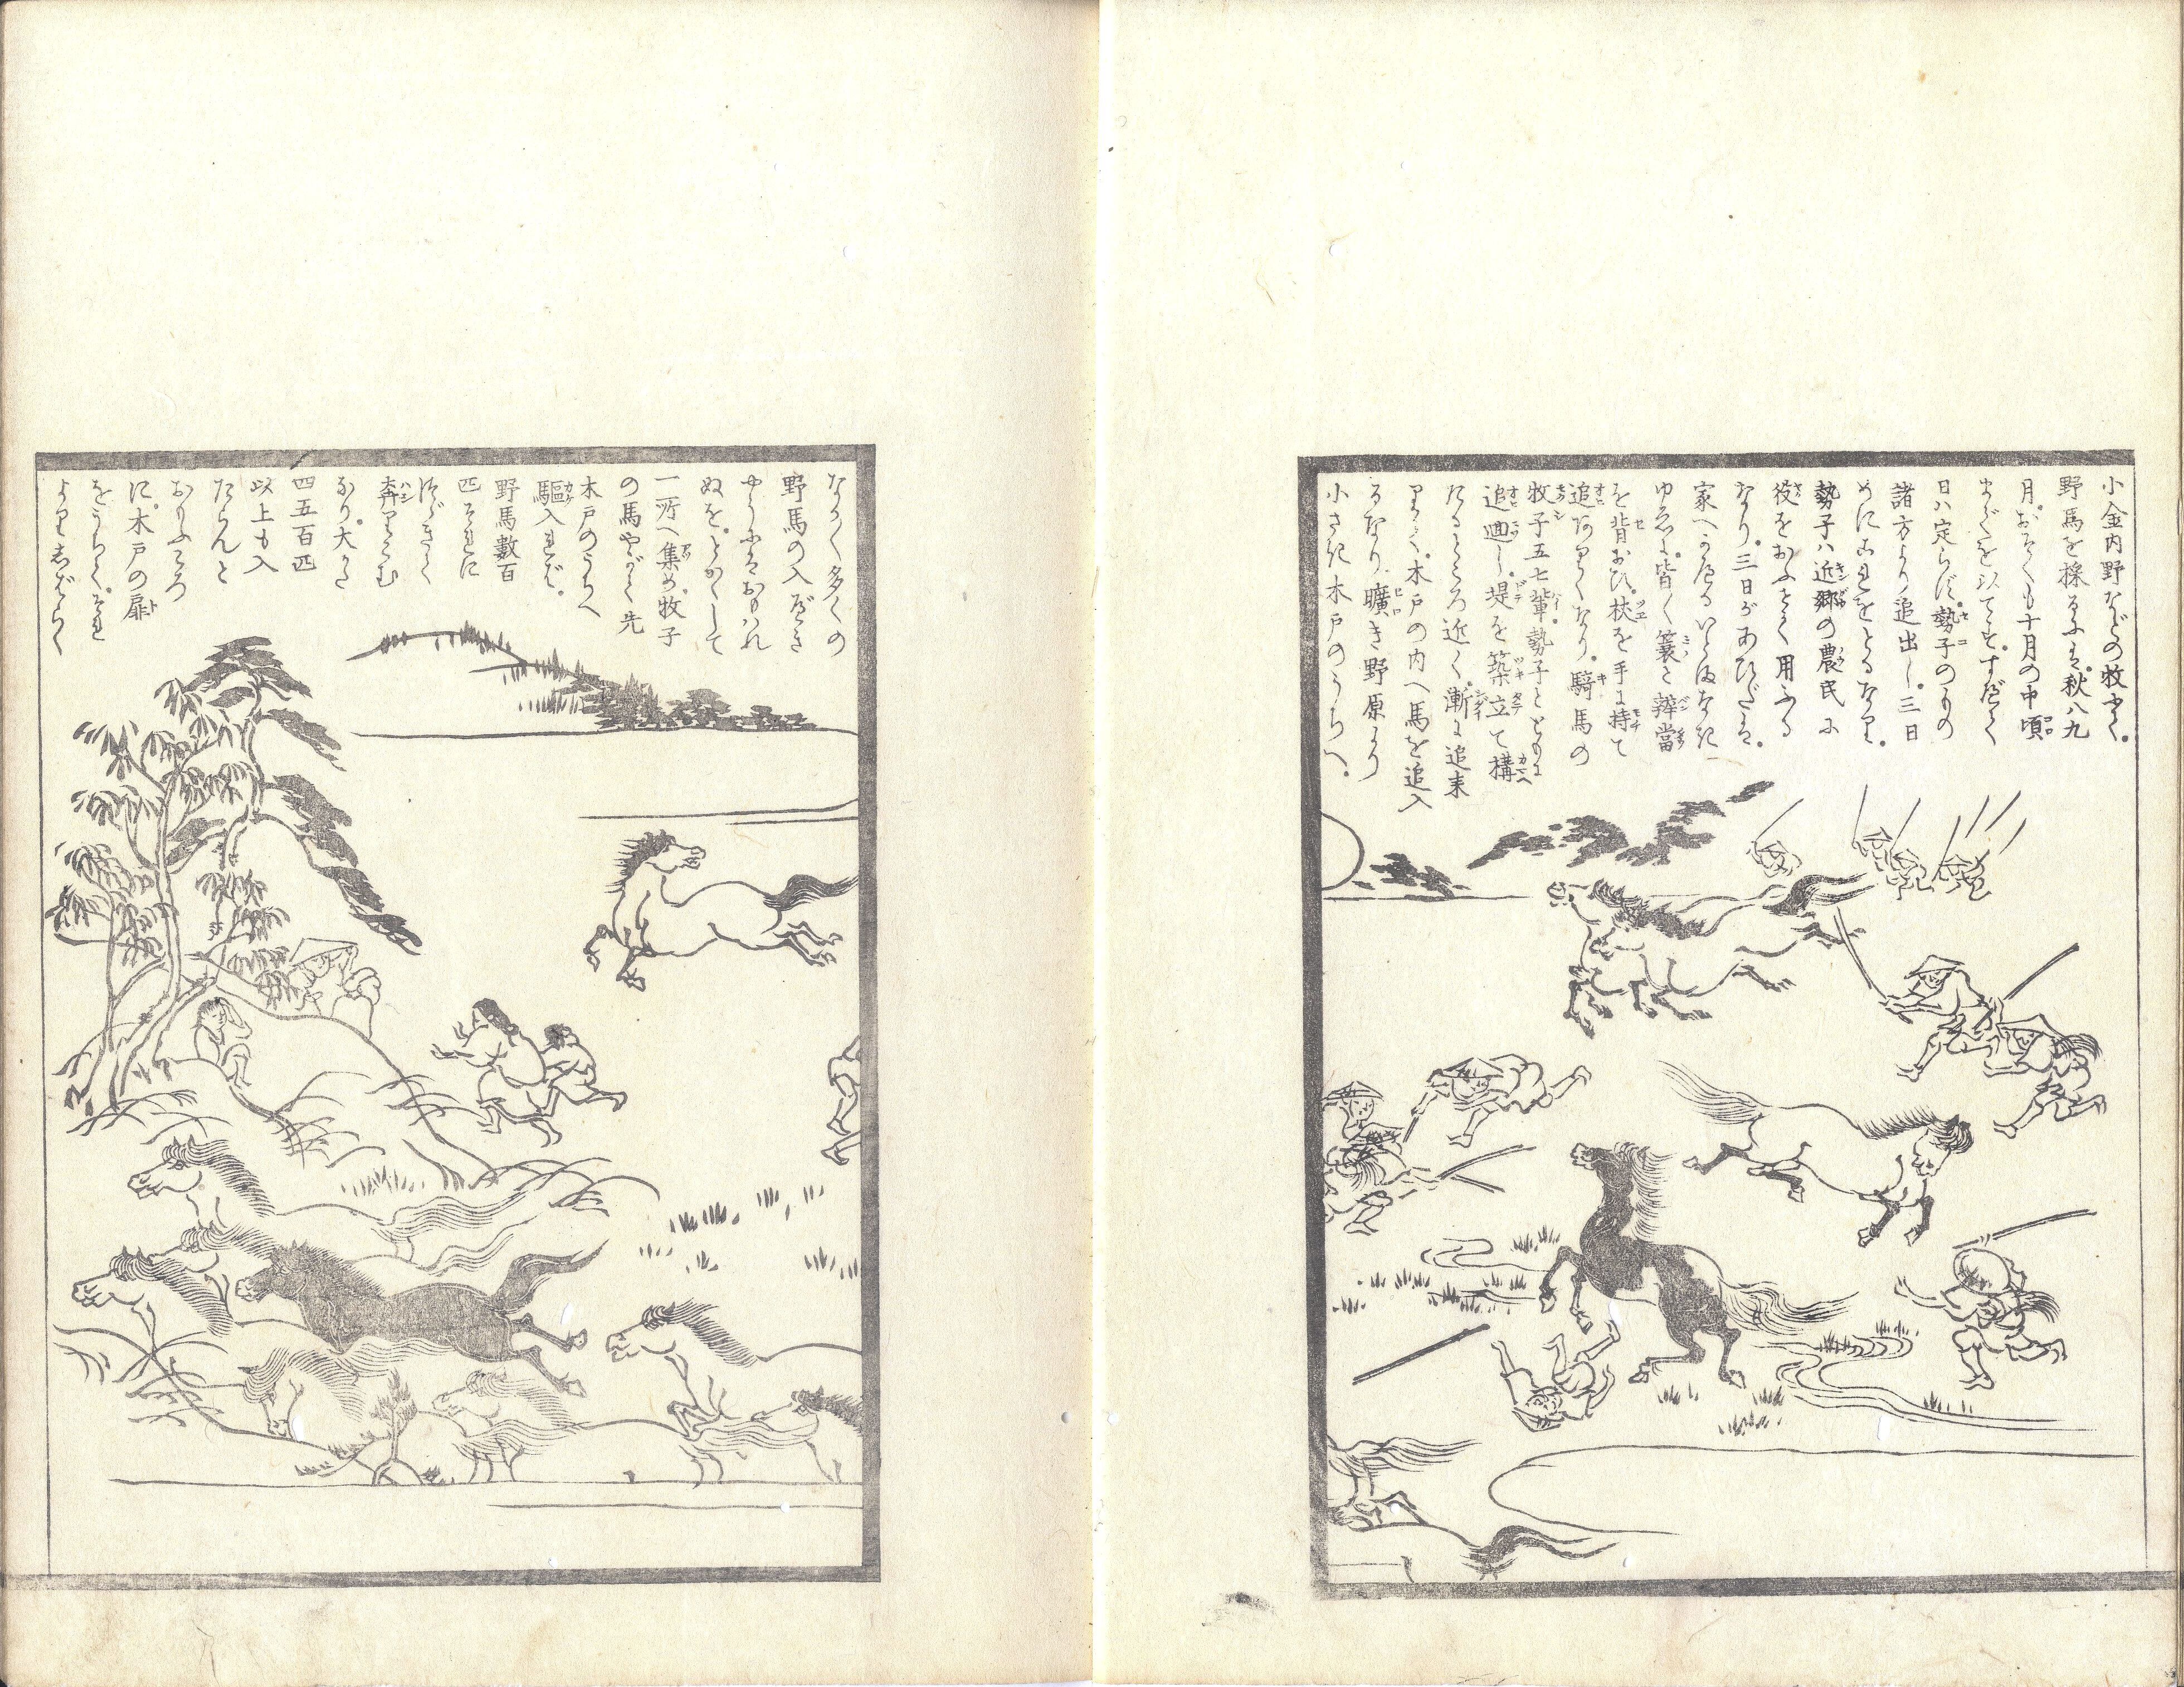 小金内野などの牧にて。
野馬を採るには。秋八九
月。おそくも十月の中頃
までを以てす。すべて
日ハ定らず。勢子のもの
諸方より追出し。三日
めにこれをとるなり。
勢子ハ近郷の農民に
役をおふせて用ふる
なり。三日があひだは。
家へかへるいとまなき
ゆゑに。皆々簑と辨當
を背おひ。杖を手に持て
追ありくなり。騎馬の
牧子五七輩。勢子とともに
追廻し。堤を築立て構
たるところ近く。漸に追来
りて。木戸の内へ馬を追入
るなり。曠き野原より
小さき木戸のうちへ。
なかく多くの
野馬の入べき
やうにはおもハれ
ぬを。とかくして
一所へ集め。牧子
の馬やがて先
木戸のうちへ
驅入れば。
野馬數百
匹それに
つゞきて
奔りこむ
なり。大かた
四五百匹
以上も入
たらんと
おもふころ
に。木戸の扉
をうちて。それ
よりしばらく